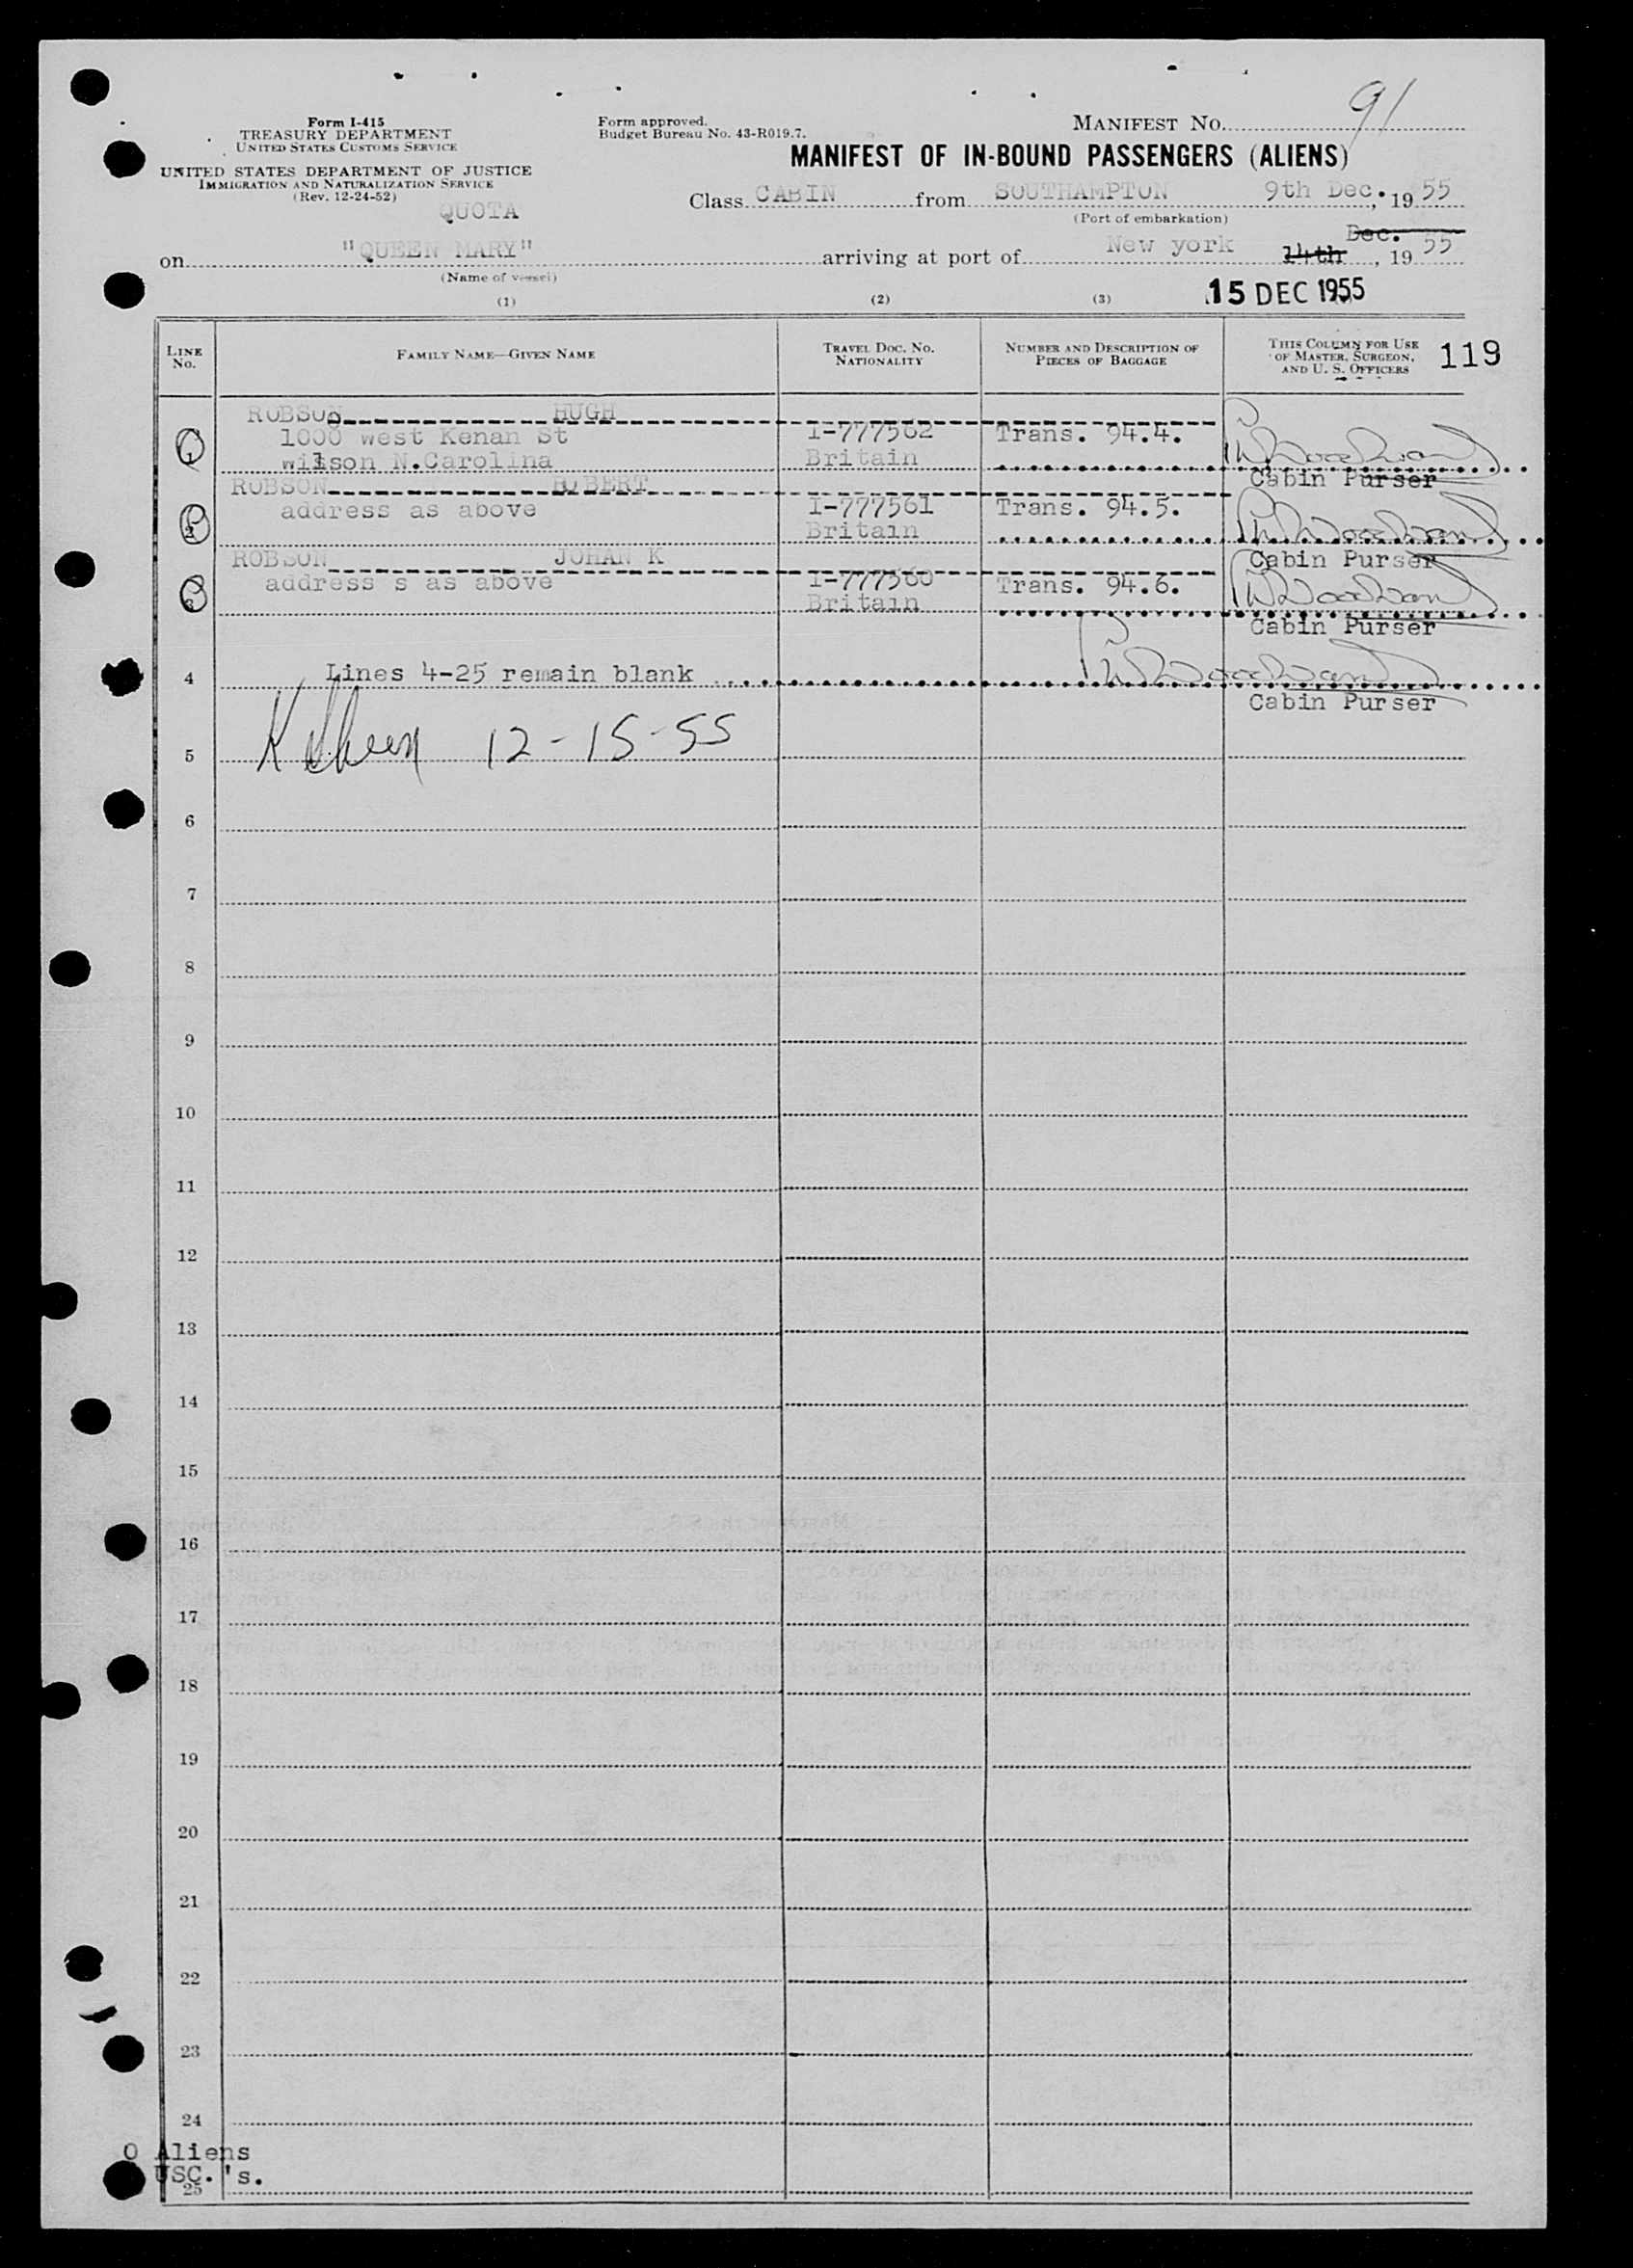 Form I-415
TREASURY DEPARTMENT
UNITED STATES CUSTOMS SERVICE
UNITED STATES DEPARTMENT OF JUSTICE
IMMIGRATION AND NATURALIZATION SERVICE
(Rev. 12-24-52)
QUOTA
Form approved.
Budget Bureau No. 43-R019.7.
MANIFEST NO. 91
MANIFEST OF IN-BOUND PASSENGERS (ALIENS)
Class CABIN from SOUTHAMPTON 9th Dec., 1955
(Port of embarkation)
on "QUEEN MARY" arriving at port of New york 14th Dec., 1955
(Name of vessel)
15 DEC 1955
(1) (2) (3)
LINE No. FAMILY NAME—GIVEN NAME TRAVEL DOC. NO. NATIONALITY NUMBER AND DESCRIPTION OF PIECES OF BAGGAGE THIS COLUMN FOR USE OF MASTER, SURGEON, AND U. S. OFFICERS 119
ROBSON HUGH
1 1000 west Kenan St I-777562 Trans. 94.4.
wilson N.Carolina Britain
Cabin Purser
ROBSON ROBERT
2 address as above I-777561 Trans. 94.5.
Britain
Cabin Purser
ROBSON JOHAN K
3 address s as above I-777560 Trans. 94.6.
Britain
Cabin Purser
4 Lines 4-25 remain blank
Cabin Purser
5 12-15-55
6
7
8
9
10
11
12
13
14
15
16
17
18
19
20
21
22
23
24
0 Aliens
USC.'s.
25